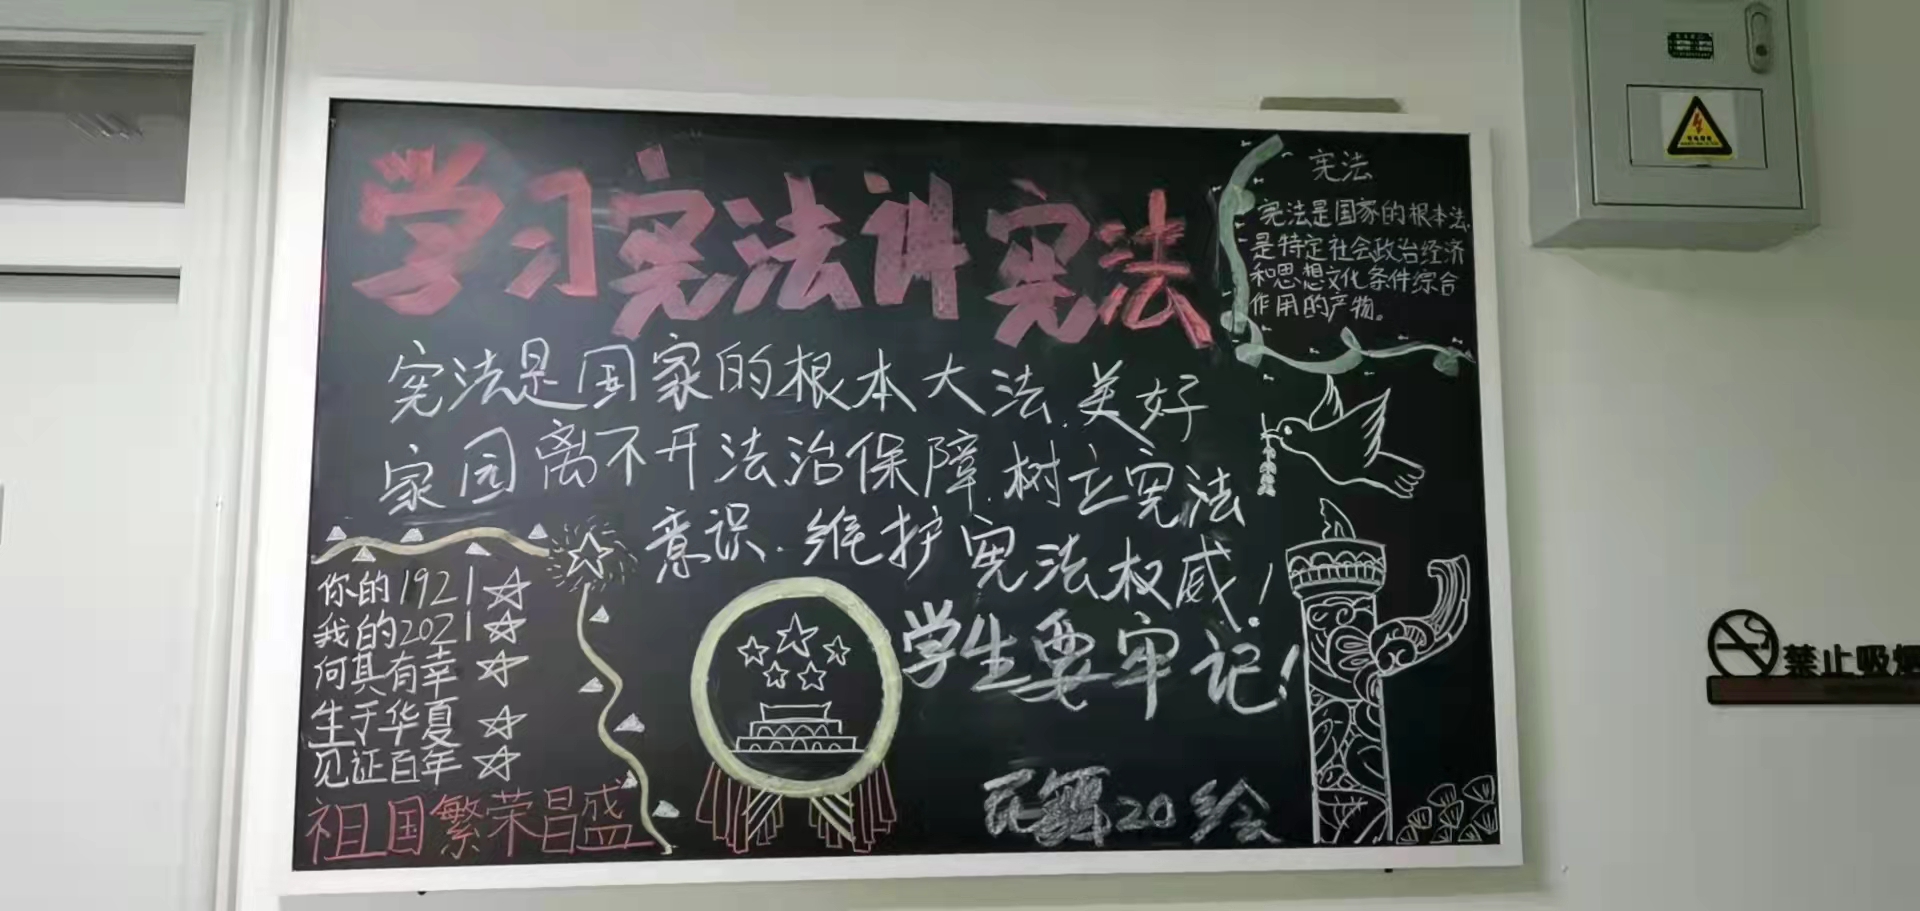 学习宪法讲宪法
宪法
宪法是国家的根本法,
是特定社会政治经济
和思想文化条件综合
作用的产物。
宪法是国家的根本大法.美好
家园离不开法治保障.树立宪法
意识.维护宪法权威!
学生要牢记!
你的1921
我的2021
何其有幸
生于华夏
见证百年
祖国繁荣昌盛
20绘
禁止吸烟